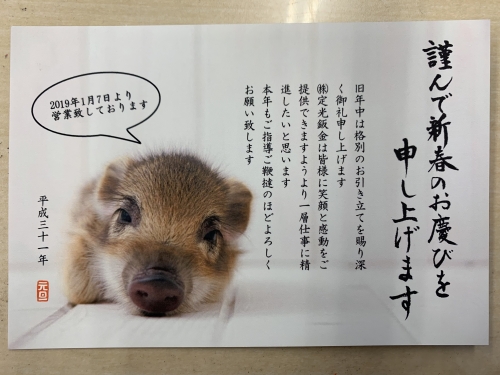 謹んで新春のお慶びを
申し上げます
旧年中は格別のお引き立てを賜り深
く御礼申し上げます
㈱定光鈑金は皆様に笑顔と感動をご
提供できますようより一層仕事に精
進したいと思います
本年もご指導ご鞭撻のほどよろしく
お願い致します
2019年1月7日より
営業致しております
平成三十一年
元旦